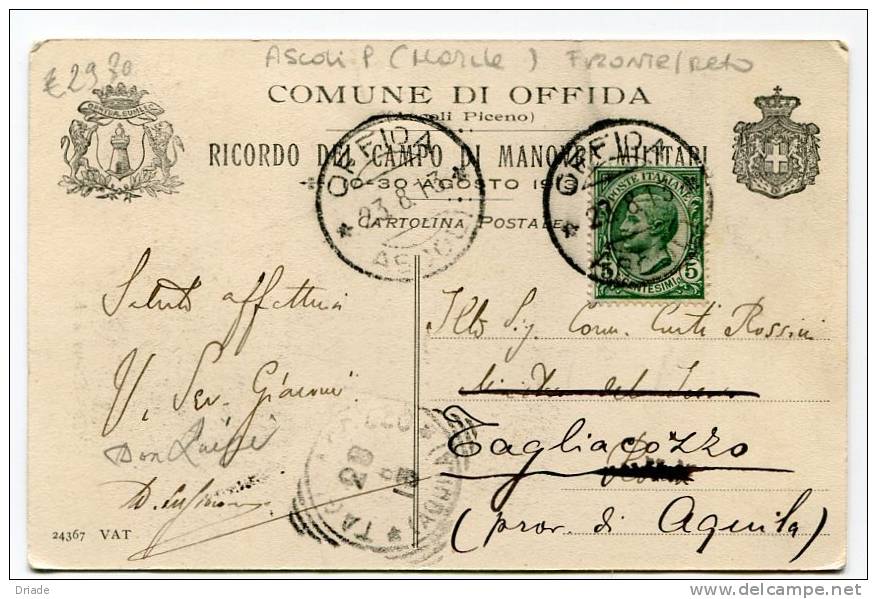 ASCOLI P (MARCHE) FRONTE/RETO
€ 29
COMUNE DI OFFIDA
(Ascoli Piceno)
RICORDO DEL CAMPO DI MANOVRE MILITARI
0-30 AGOSTO 1913
CARTOLINA POSTALE
OFFIDA
23.8.13
ASCOLI
OFFIDA
8.13
POSTE ITALIANE
5 CENTESIMI 5
Saluti affettuosi
Sev. Giacomi
Don Luigi
Illo Sig. Comm. Conti Rossini
del
Tagliacozzo
(prov. di Aquila)
TAGLIACOZZO
28
13
(AQUILA)
24367 VAT
Driade
delcampe.net